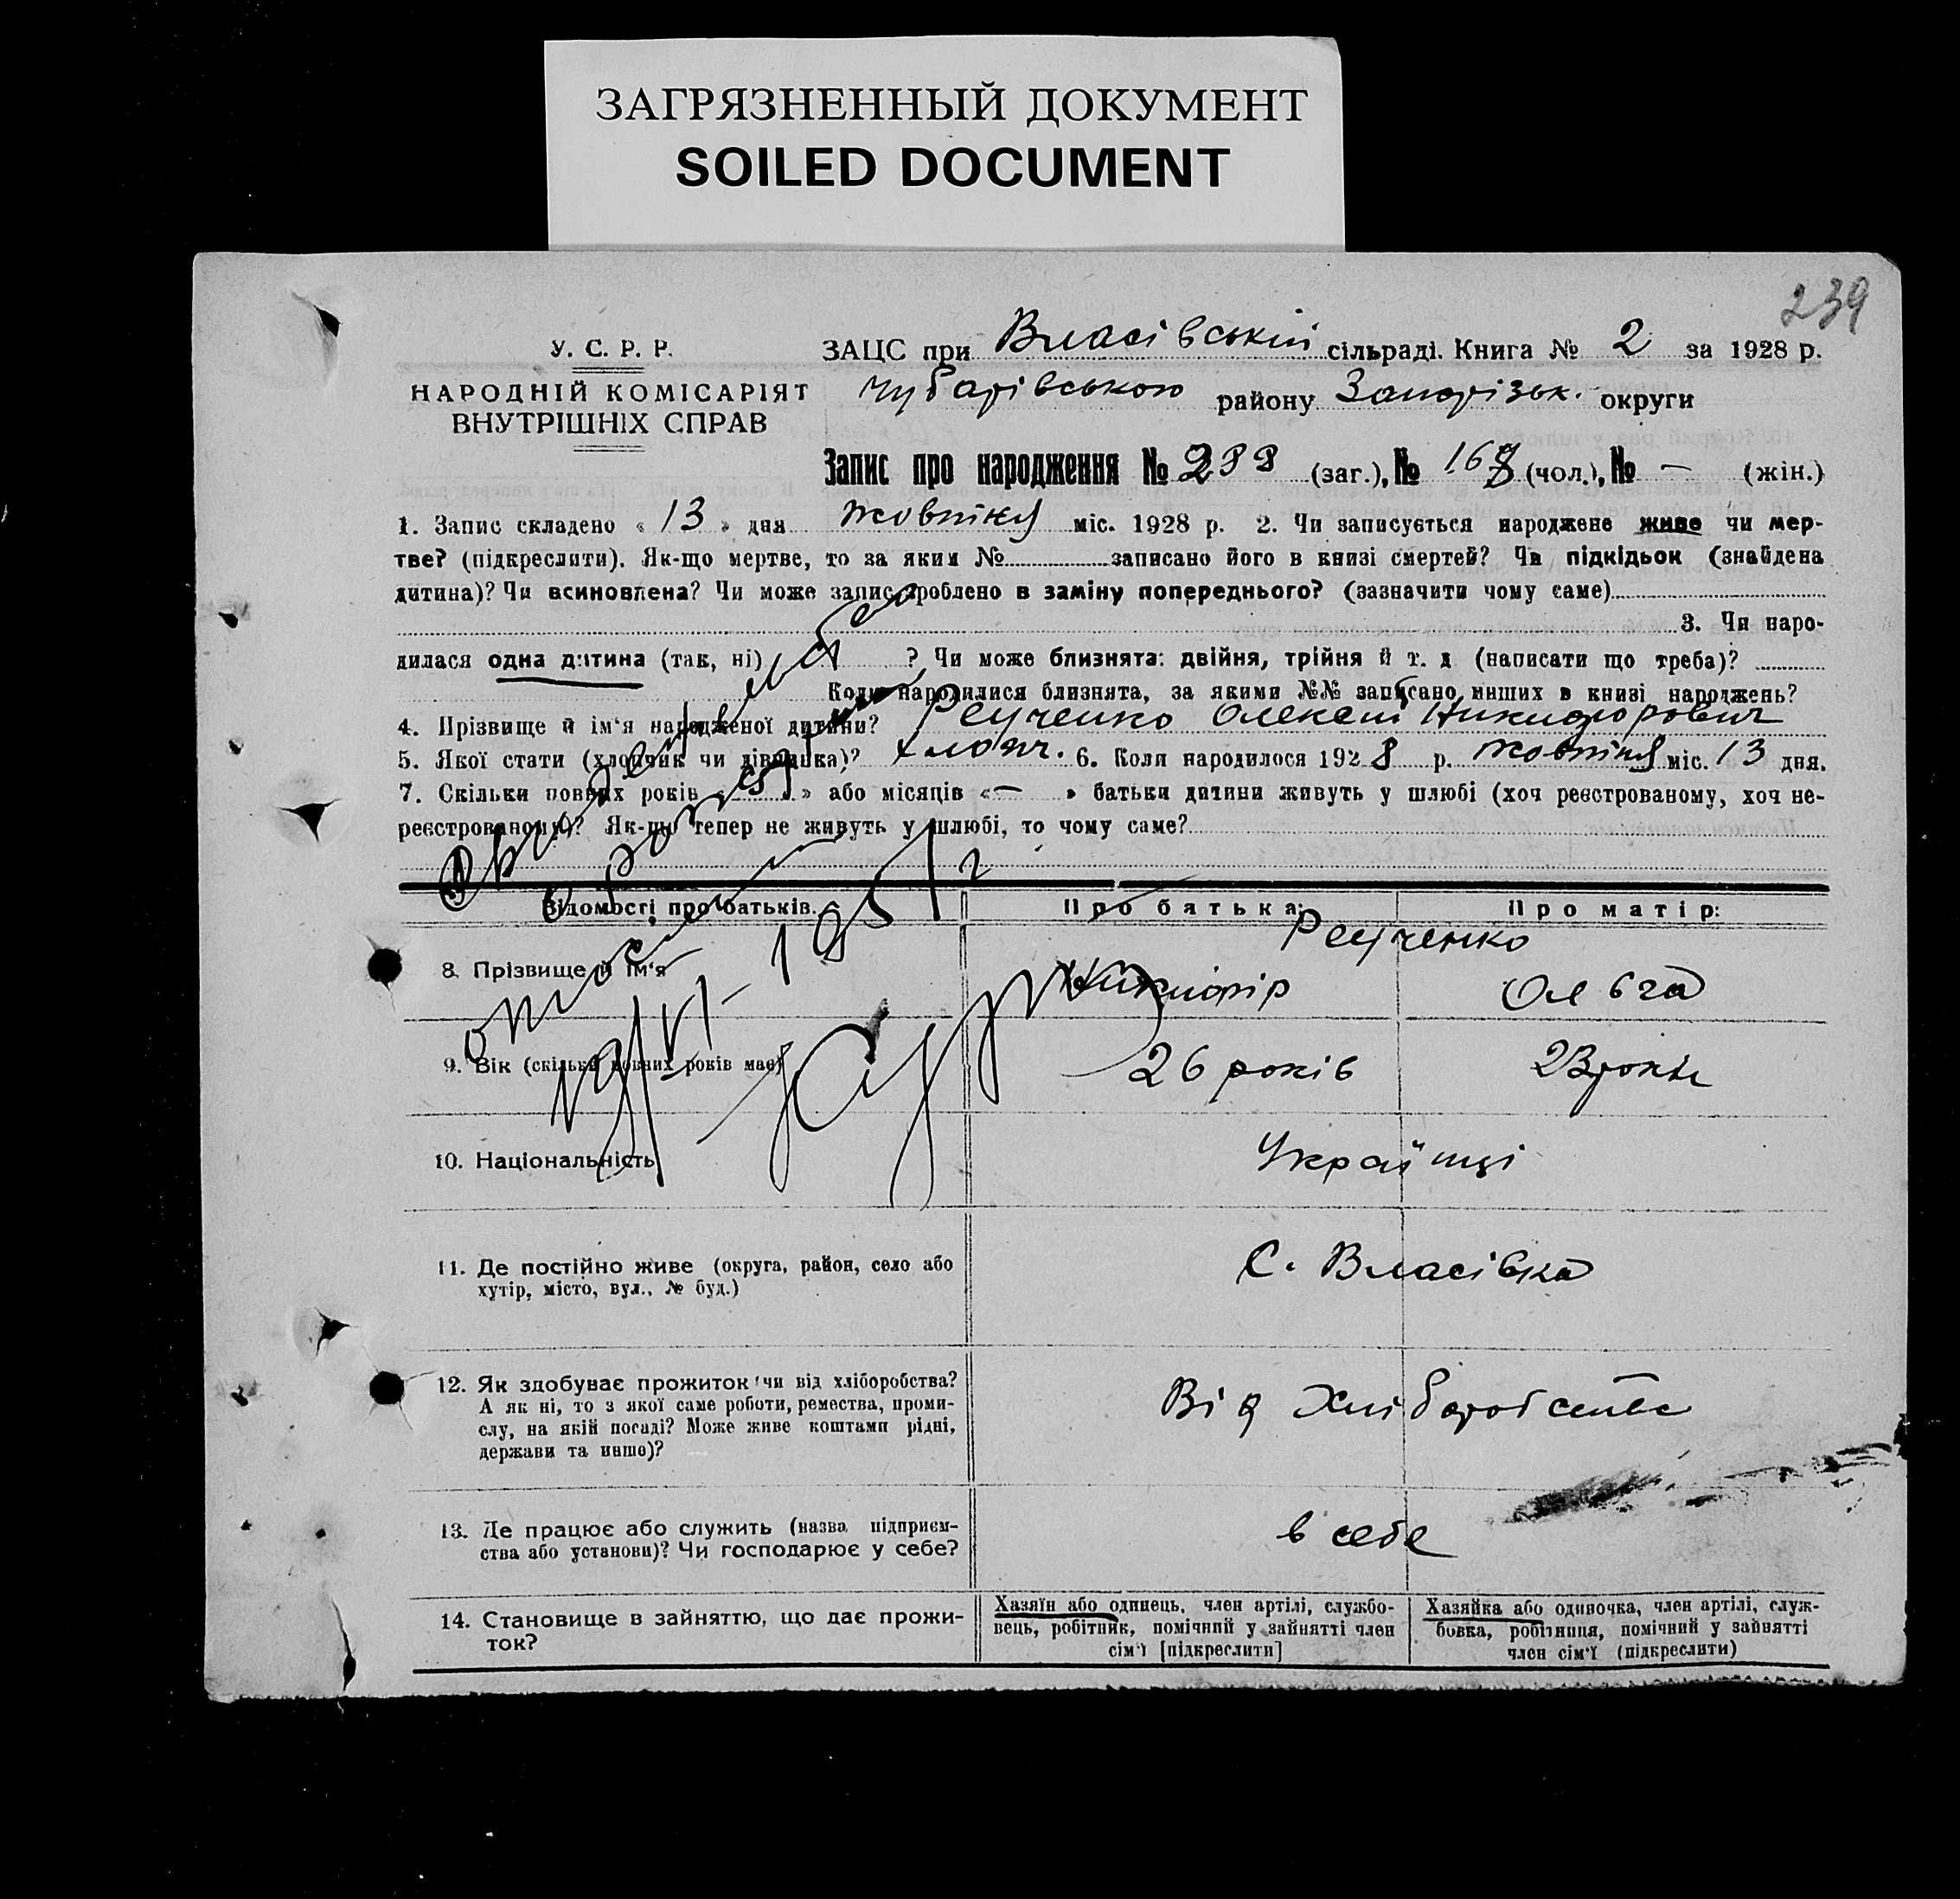 ЗАГРЯЗНЕННЫЙ ДОКУМЕНТ
SOILED DOCUMENT
239
У. С. Р. Р.
НАРОДНІЙ КОМІСАРІЯТ
ВНУТРІШНІХ СПРАВ
ЗАЦС при Власівській сільраді. Книга № 2 за 1928 р.
Чубарівською району Запорізьк. округи
Запис про народження № 233 (заг.), № 168 (чол.), № — (жін.)
1. Запис складено «13» дня жовтня міс. 1928 р. 2. Чи записується народжене живе чи мер-
тве? (підкреслити). Як-що мертве, то за яким № записано його в книзі смертей? Чи підкідьок (знайдена
дитина)? Чи всиновлена? Чи може запис зроблено в заміну попереднього? (зазначити чому саме)
3. Чи наро-
дилася одна дитина (так, ні) ? Чи може близнята: двійня, трійня й т. д (написати що треба)?
Коли народилися близнята, за якими №№ записано инших в книзі народжень?
4. Прізвище й ім'я народженої дитини? Реученко Олексій Никифорович
5. Якої стати (хлопчик чи дівчинка)? хлопч. 6. Коли народилося 1928 р. жовтня міс. 13 дня.
7. Скільки повних років « 5 » або місяців «—» батьки дитини живуть у шлюбі (хоч реєстрованому, хоч не-
реєстрованому)? Як-що тепер не живуть у шлюбі, то чому саме?
Відомості про батьків. Про батька: Про матір:
Реученко
8. Прізвище й ім'я Никифір Ольга
9. Вік (скільки повних років має) 26 років 23 роки
10. Національність Українці
11. Де постійно живе (округа, район, село або
хутір, місто, вул., № буд.) С. Власівка
12. Як здобуває прожиток чи від хліборобства?
А як ні, то з якої саме роботи, ремества, проми-
слу, на якій посаді? Може живе коштами рідні,
держави та инше)? Від Хліборобства
13. Де працює або служить (назва підприєм-
ства або установи)? Чи господарює у себе? в себе
14. Становище в зайняттю, що дає прожи-
ток?
Хазяїн або одинець, член артілі, службо-
вець, робітник, помічний у зайнятті член
сім'ї [підкреслити]
Хазяйка або одиночка, член артілі, служ-
бовка, робітниця, помічний у зайнятті
член сім'ї (підкреслити)